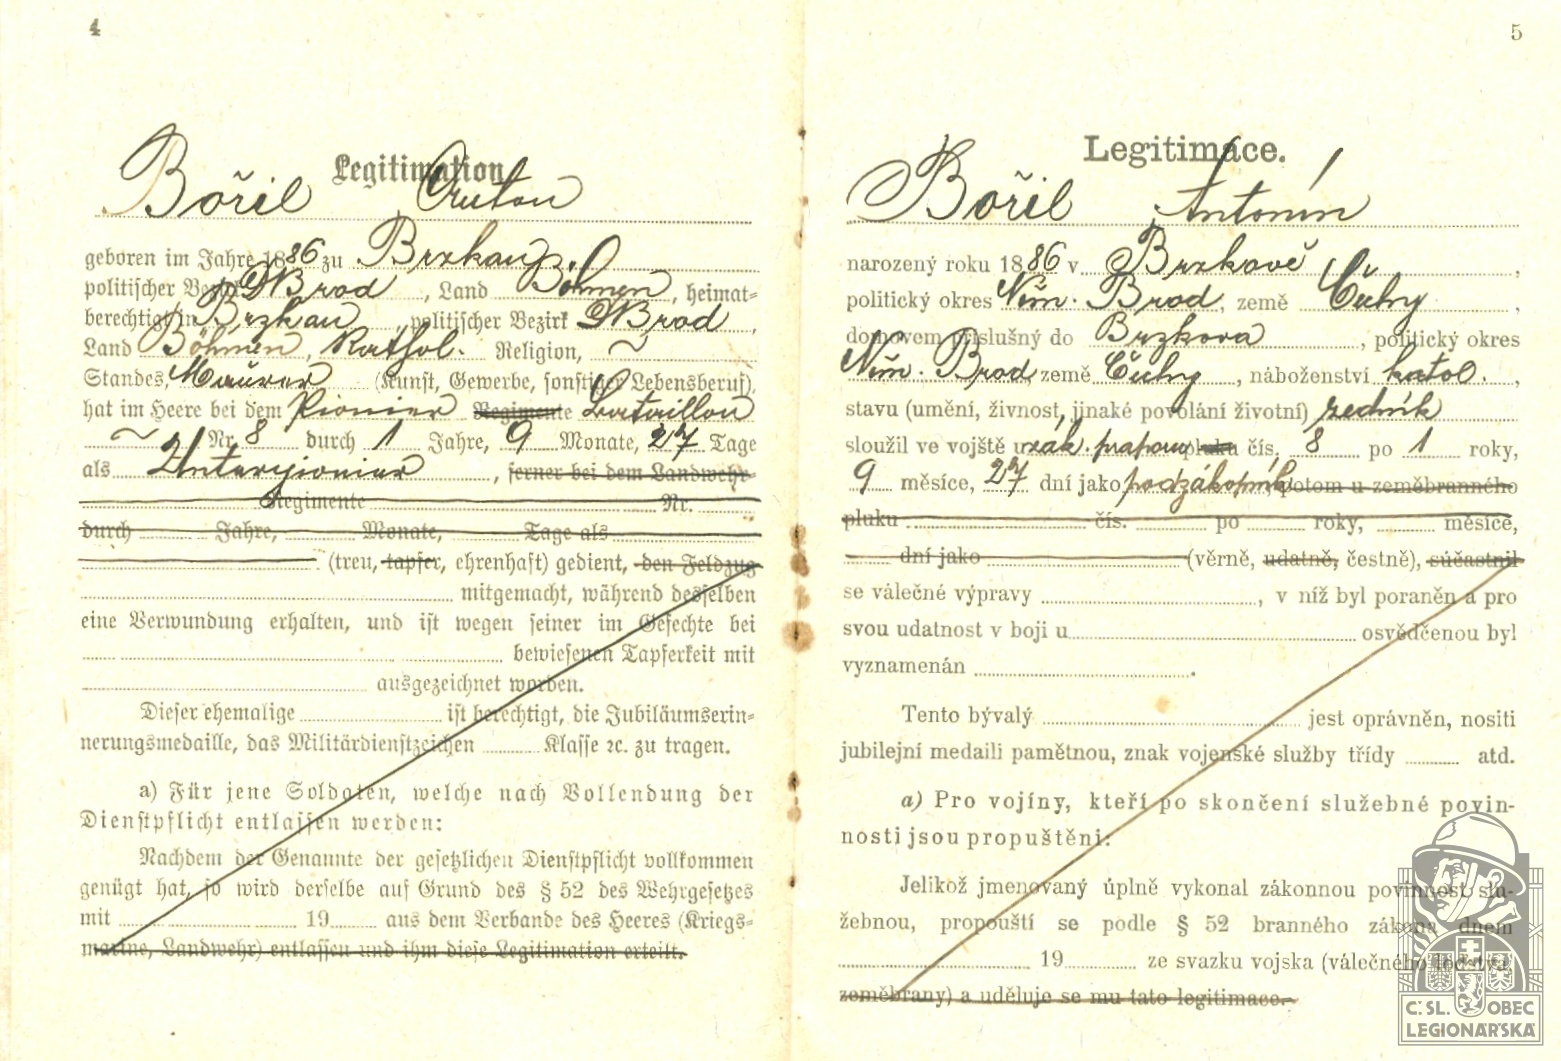 4
Legitimation
Bořil Anton
geboren im Jahre 1886 zu Brzkau,
politischer Bezirk DBrod, Land Böhmen, heimat-
berechtigt in Brzkau, politischer Bezirk DBrod,
Land Böhmen, Kathol. Religion, ~
Standes, Maurer (Kunst, Gewerbe, sonstiger Lebensberuf),
hat im Heere bei dem Pionier Regimente Bataillon
~ Nr. 8 durch 1 Jahre, 9 Monate, 27 Tage
als Unterpionier, ferner bei dem Landwehr-
Regimente Nr.
durch Jahre, Monate, Tage als
(treu, tapfer, ehrenhaft) gedient, den Feldzug
mitgemacht, während desselben
eine Verwundung erhalten, und ist wegen seiner im Gefechte bei
bewiesenen Tapferkeit mit
ausgezeichnet worden.
Dieser ehemalige ist berechtigt, die Jubiläumserin-
nerungsmedaille, das Militärdienstzeichen Klasse 2c. zu tragen.
a) Für jene Soldaten, welche nach Vollendung der
Dienstpflicht entlassen werden:
Nachdem der Genannte der gesetzlichen Dienstpflicht vollkommen
genügt hat, so wird derselbe auf Grund des § 52 des Wehrgesetzes
mit 19 aus dem Verbande des Heeres (Kriegs-
marine, Landwehr) entlassen und ihm diese Legitimation erteilt.
5
Legitimace.
Bořil Antonín
narozený roku 1886 v Brzkově,
politický okres Něm. Brod, země Čechy,
domovem příslušný do Brzkova, politický okres
Něm. Brod země Čechy, náboženství katol.,
stavu (umění, živnost, jinaké povolání životní) zedník
sloužil ve vojště u zák. praporu pluku čís. 8 po 1 roky,
9 měsíce, 27 dní jako podzákopník, potom u zeměbranného
pluku čís. po roky, měsíce,
dní jako (věrně, udatně, čestně), súčastnil
se válečné výpravy, v níž byl poraněn a pro
svou udatnost v boji u osvědčenou byl
vyznamenán.
Tento bývalý jest oprávněn, nositi
jubilejní medaili pamětnou, znak vojenské služby třídy atd.
a) Pro vojíny, kteří po skončení služebné povin-
nosti jsou propuštěni:
Jelikož jmenovaný úplně vykonal zákonnou povinnost slu-
žebnou, propouští se podle § 52 branného zákona dnem
19 ze svazku vojska (válečného loďstva,
zeměbrany) a uděluje se mu tato legitimace.
Č.SL. OBEC
LEGIONÁŘSKÁ